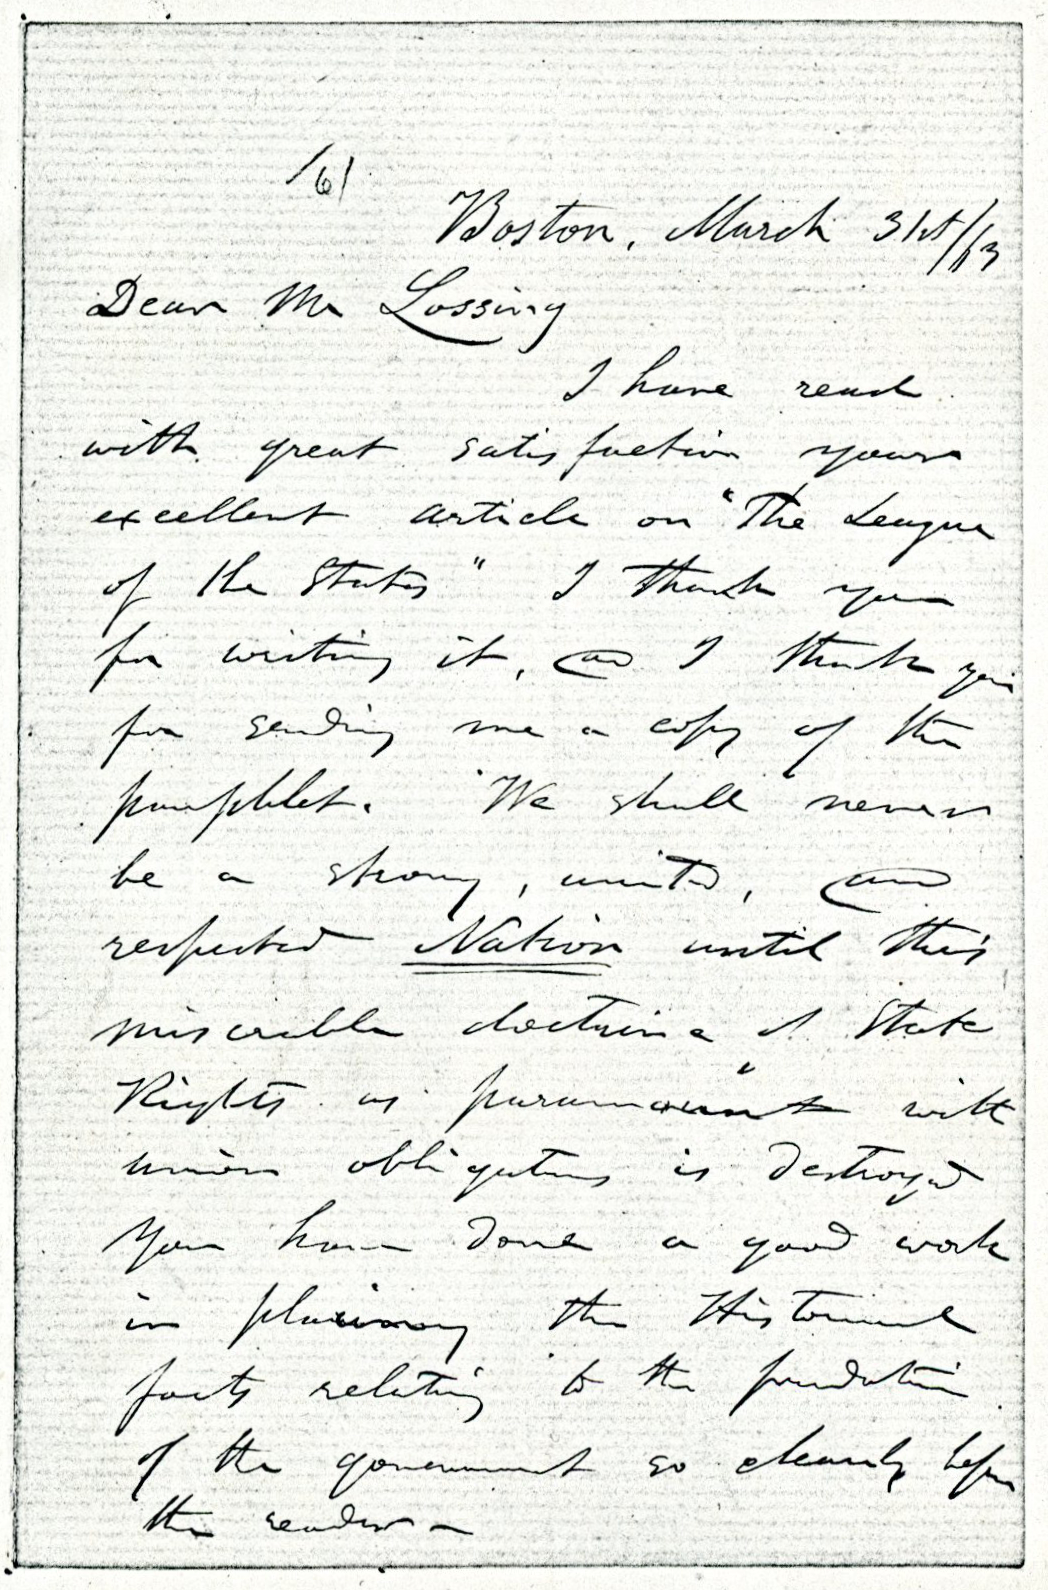 /6/
Boston, March 31st/63
Dear Mr Lossing
I have read
with great satisfaction your
excellent article on "The League
of the States" I thank you
for writing it, and I thank you
for sending me a copy of the
pamphlet. We shall never
be a strong, united, and
respected Nation until this
miserable doctrine of State
Rights as paramount with
union obligations is destroyed
You have done a good work
in placing the Historical
facts relating to the foundation
of the government so clearly before
the reader —